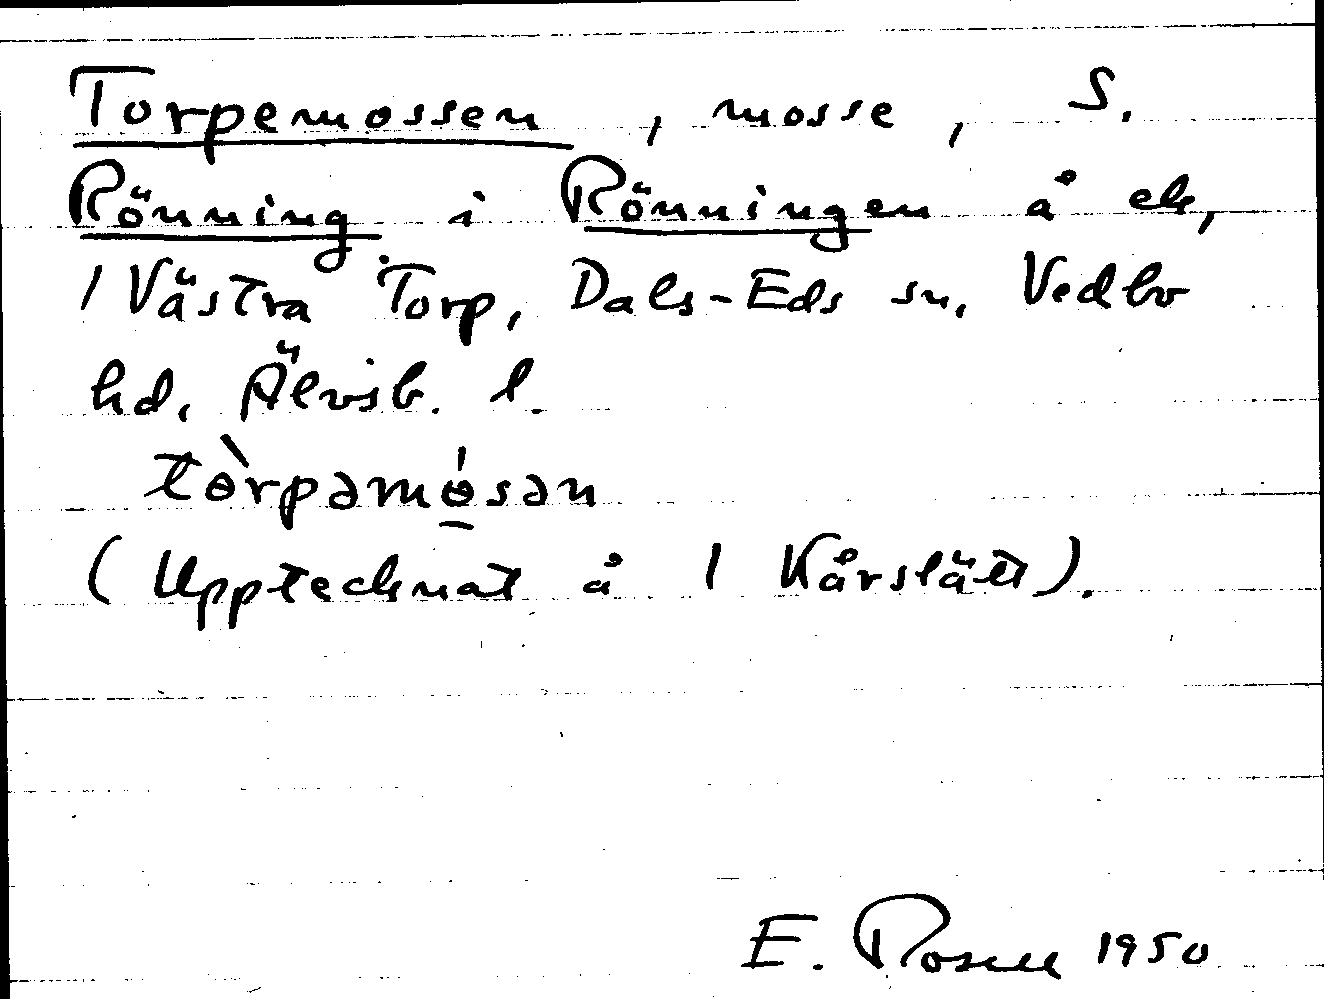 Torpemossen, mosse, S.
Rönning i Rönningen å ek,
1 Västra Torp, Dals-Eds sn, Vedbo
hd, Älvsb. l.
tɵ̀rpəmɵ́sən
(Upptecknat å 1 Kårslätt).
E. Rosell 1950